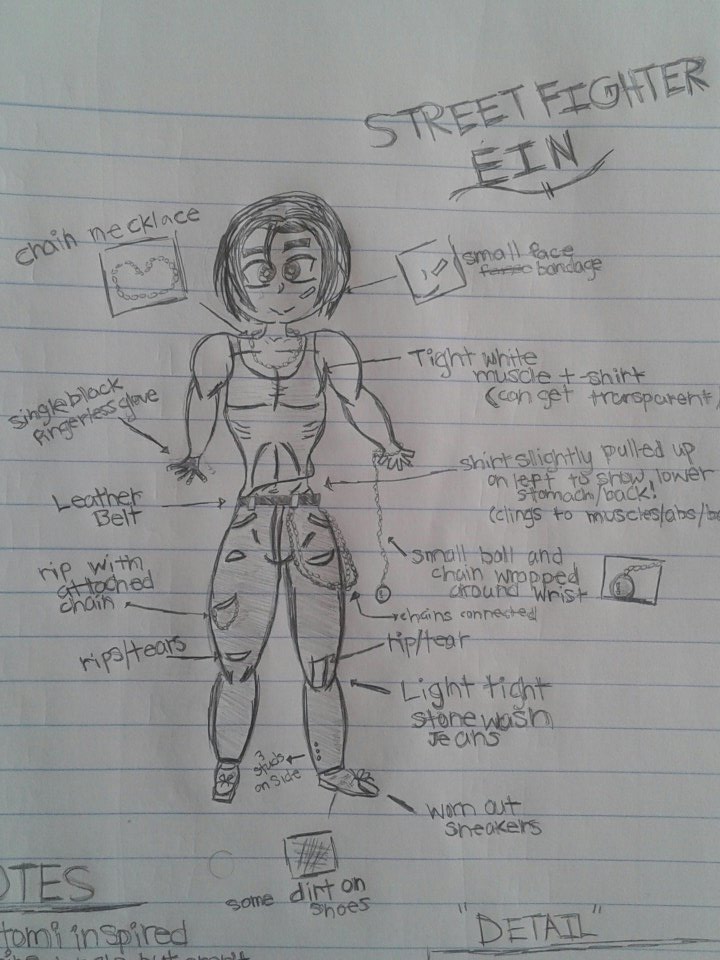 STREET FIGHTER
EIN
chain necklace
small face
bandage
Tight white
muscle t-shirt
(can get transparent
single black
fingerless glove
shirt slightly pulled up
on left to show lower
stomach/back!
(clings to muscles/abs/b
Leather
Belt
small ball and
chain wrapped
around wrist
rip with
attached
chain
chains connected
rips/tears
rip/tear
Light tight
stonewash
Jeans
3
studs
on side
worn out
sneakers
some dirt on
shoes
OTES
tomi inspired
"DETAIL"